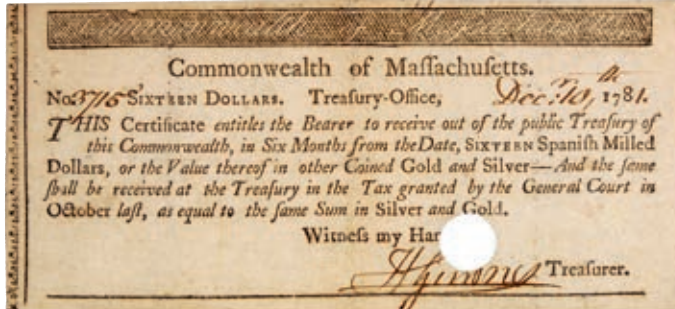 Commonwealth of Maſſachuſetts.
No. 3716 SIXTEEN DOLLARS. Treaſury-Office, Decr. 10th, 1781.
THIS Certificate entitles the Bearer to receive out of the public Treaſury of
this Commonwealth, in Six Months from the Date, SIXTEEN Spaniſh Milled
Dollars, or the Value thereof in other Coined Gold and Silver—And the ſame
ſhall be received at the Treaſury in the Tax granted by the General Court in
October laſt, as equal to the ſame Sum in Silver and Gold.
Witneſs my Han
Treaſurer.